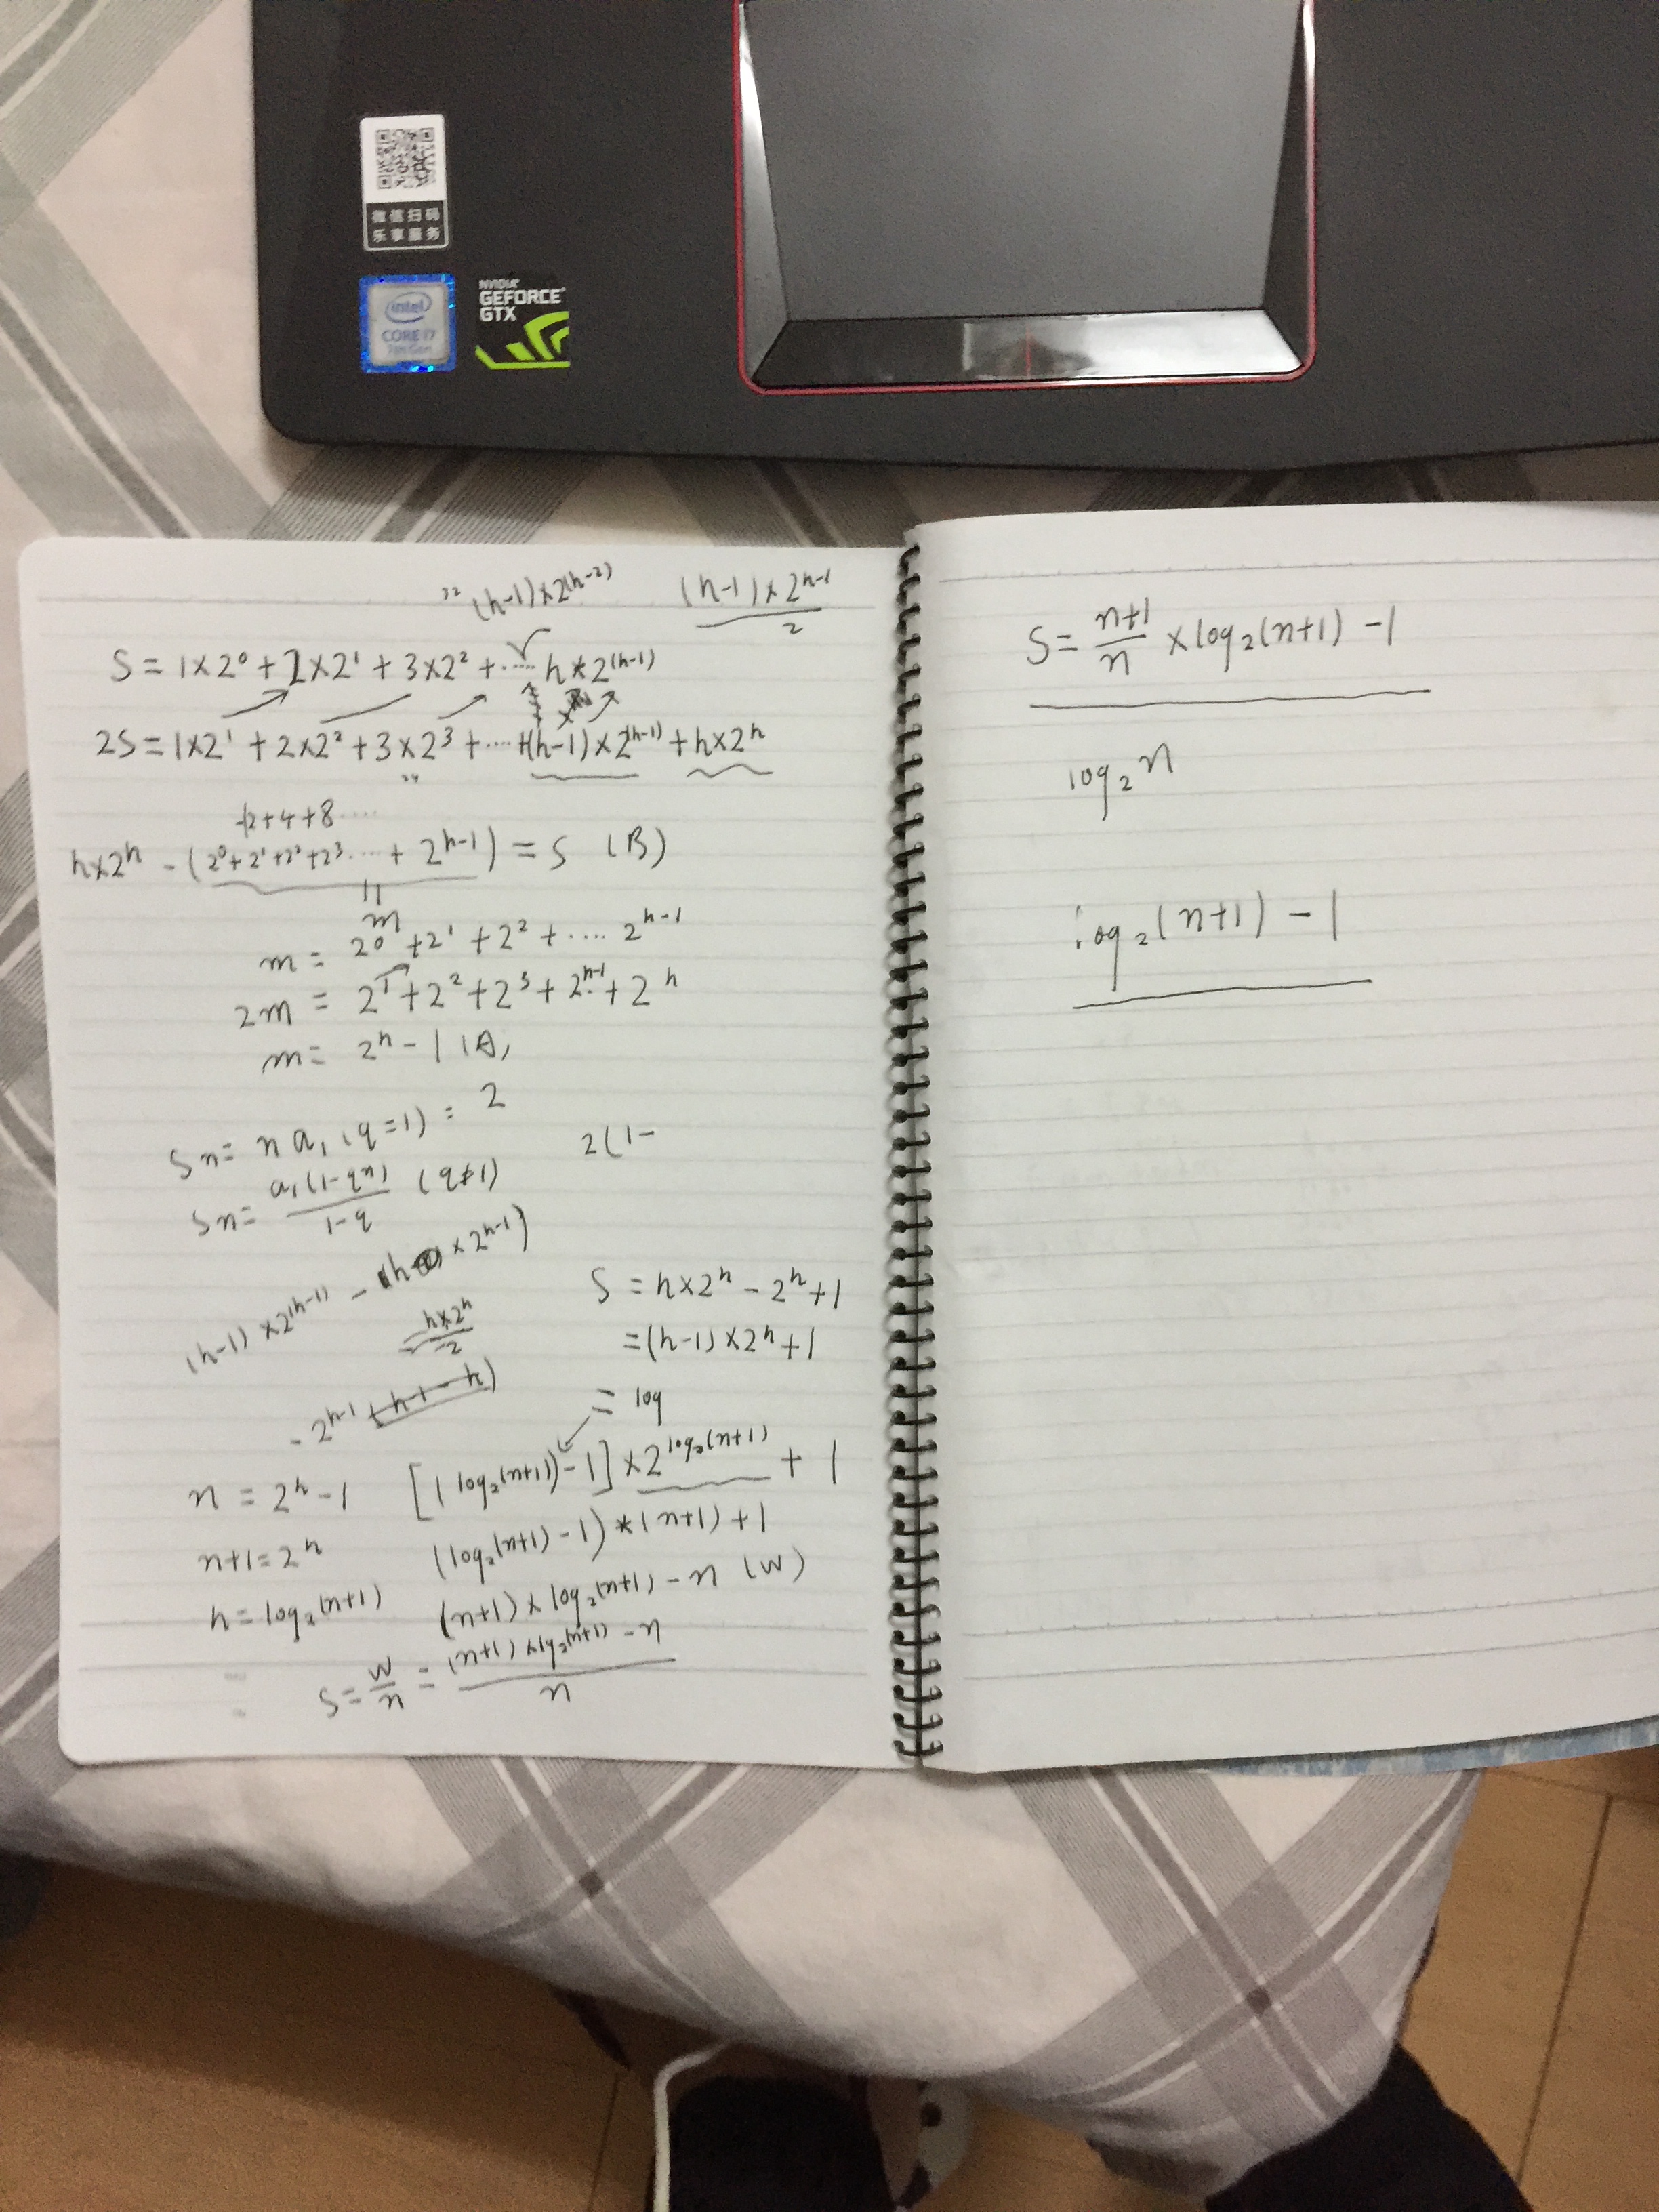 微信扫码
乐享服务
intel
CORE i7
7th Gen
NVIDIA
GEFORCE
GTX
(h-1)×2^(h-2)
(h-1)×2^(h-1) / 2
S = 1×2⁰ + 2×2¹ + 3×2² + ..... h*2^(h-1)
2S = 1×2¹ + 2×2² + 3×2³ + .... +(h-1)×2^(h-1) + h×2^h
2+4+8 ....
h×2^h - (2⁰+2¹+2²+2³ .... + 2^(h-1)) = S (B)
m
m = 2⁰ + 2¹ + 2² + .... 2^(h-1)
2m = 2¹ + 2² + 2³ + 2^(h-1) + 2^h
m = 2^h - 1 (A)
Sn = n a₁ (q=1) = 2
2(1-
Sn = a₁(1-qⁿ) / (1-q) (q≠1)
(h-1)×2^(h-1) - (h ×2^(h-1))
h×2^h / 2
- 2^(h-1)
S = h×2^h - 2^h + 1
= (h-1)×2^h + 1
= log
n = 2^h - 1
[(log₂(n+1)) - 1] × 2^(log₂(n+1)) + 1
n+1 = 2^h
(log₂(n+1) - 1) * (n+1) + 1
h = log₂(n+1)
(n+1) × log₂(n+1) - n (W)
S = W/n = ((n+1) × log₂(n+1) - n) / n
S = (n+1)/n × log₂(n+1) - 1
log₂ n
log₂(n+1) - 1